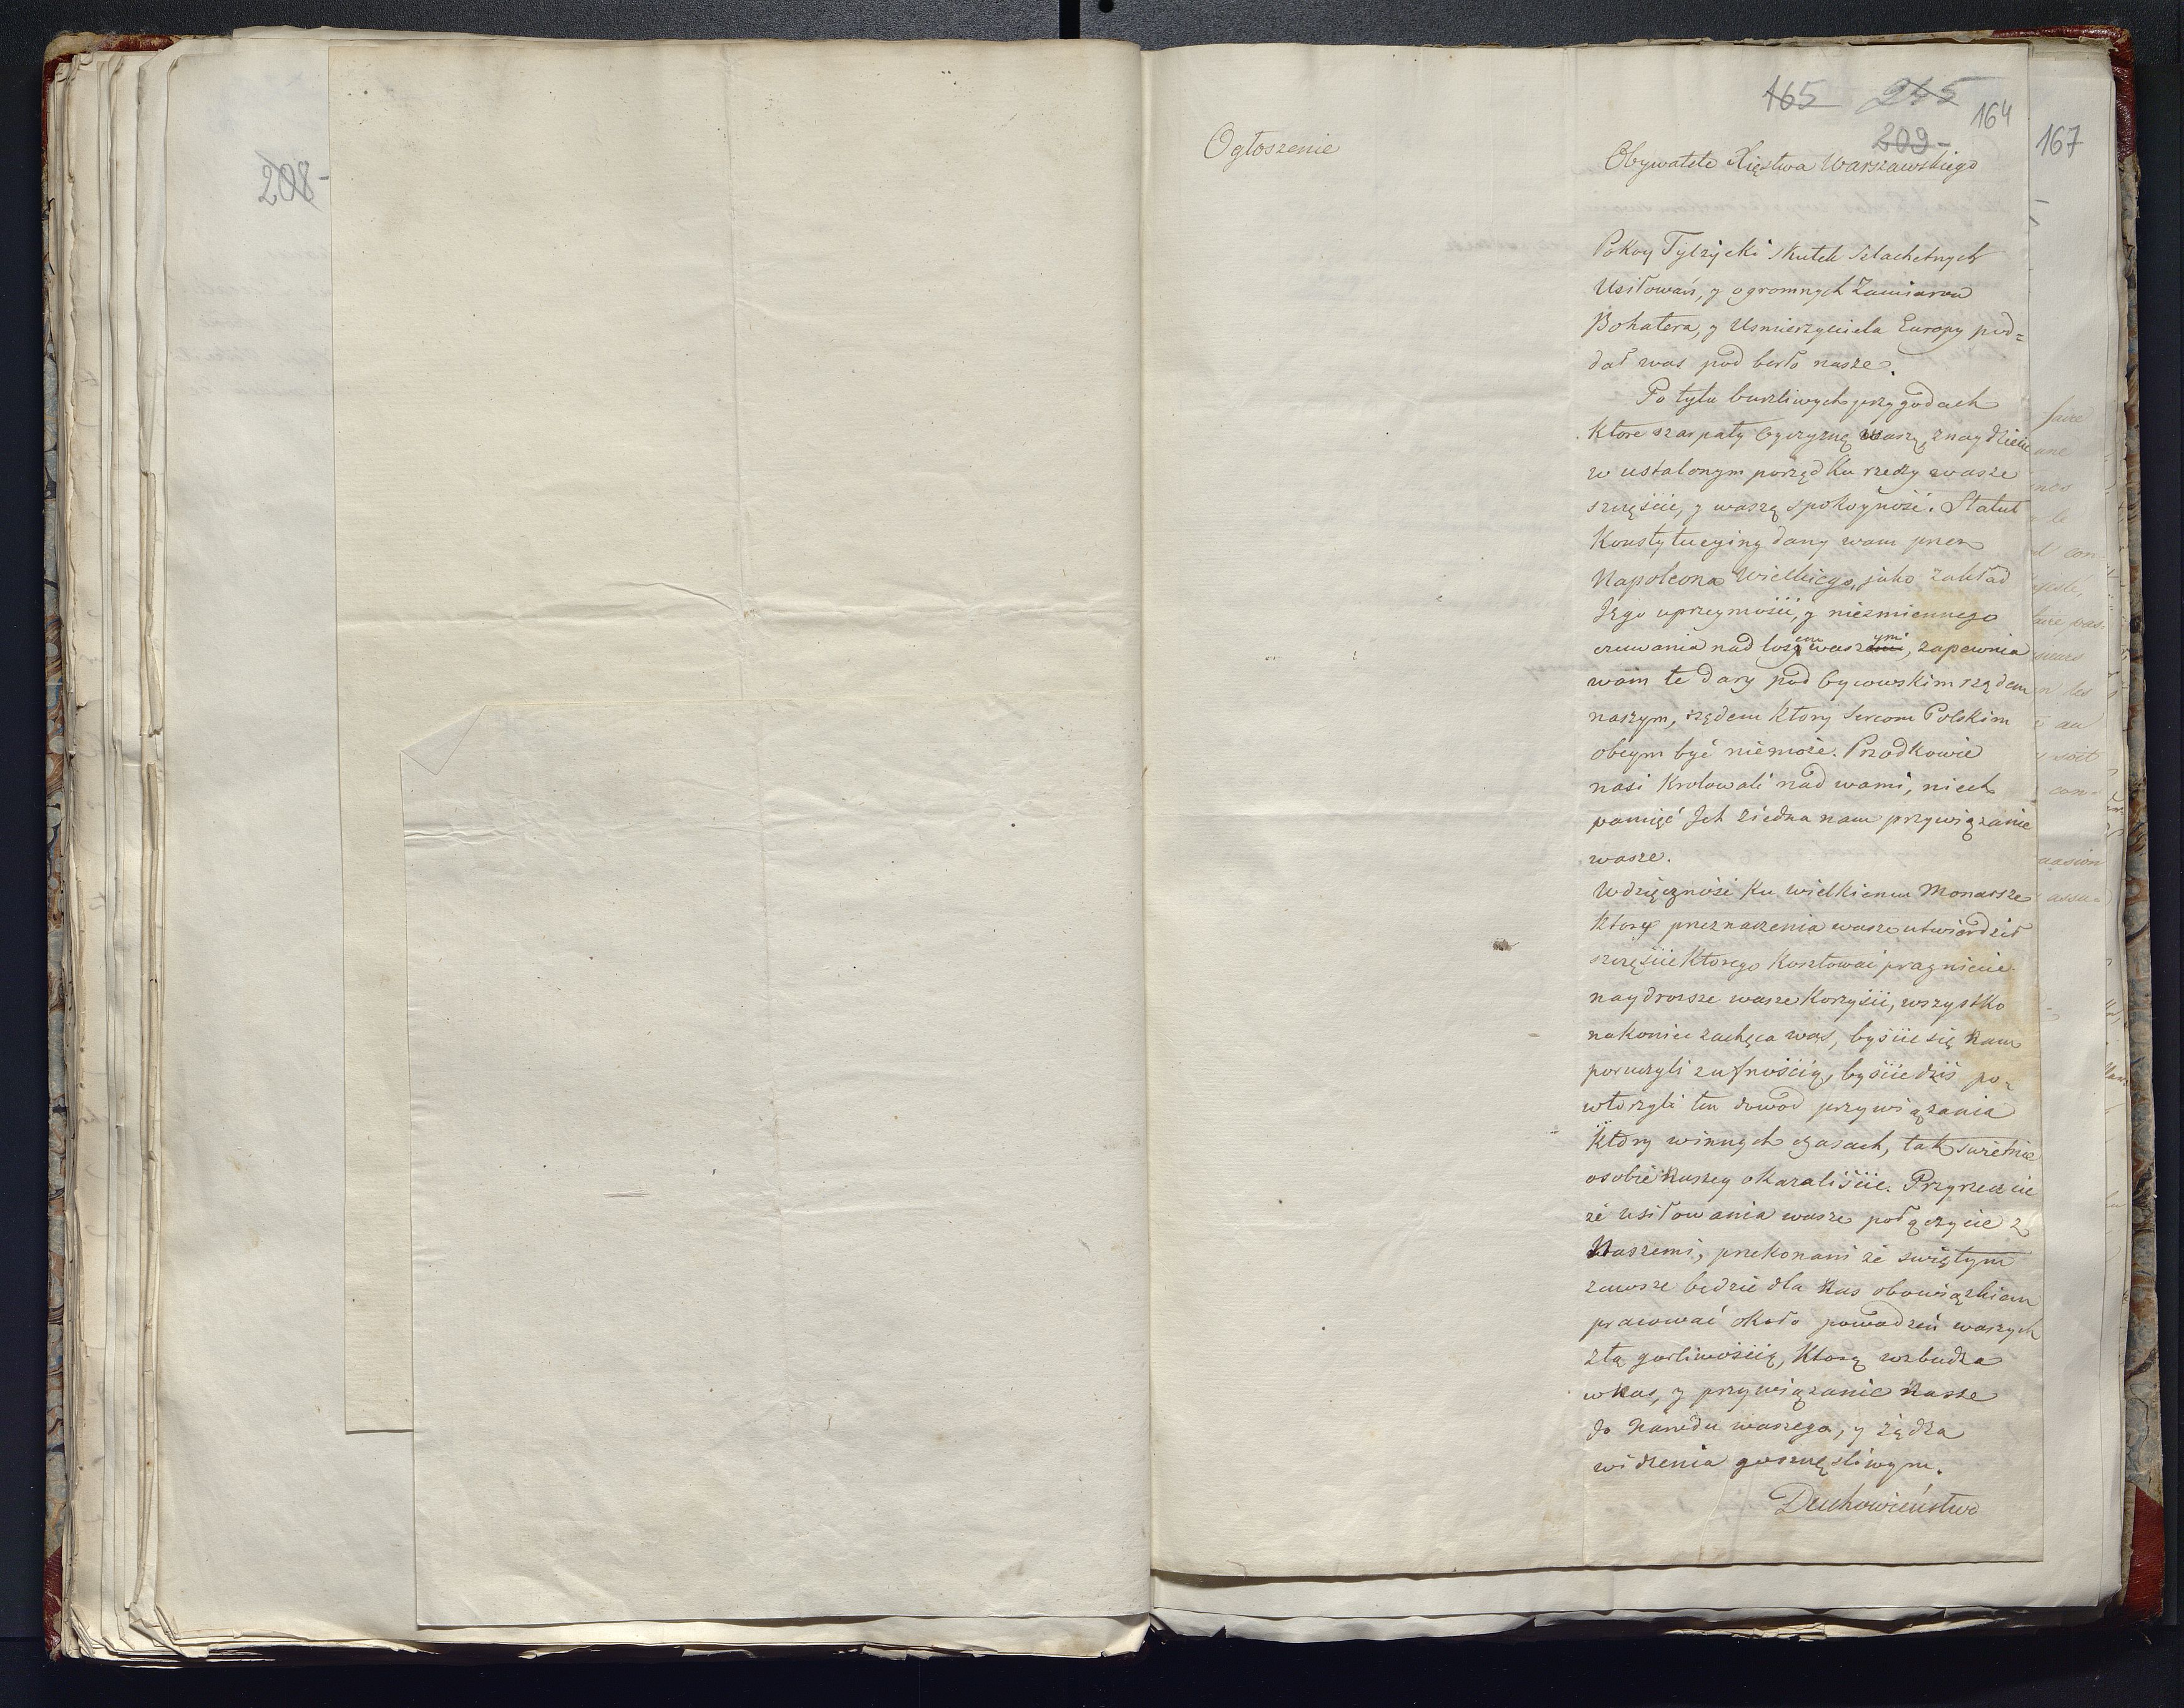 208-
165 215 164
209-
167
Ogłoszenie
Obywatele Xięstwa Warszawskiego
Pokoy Tylzycki skutek szlachetnych
Usiłowań, y ogromnych Zamiarow
Bohatera, y Usmierzyciela Europy pod=
dał was pod berło nasze.
Po tylu burzliwych przygodach
Ktore szarpały Oyczyznę waszą, znaydziecie
w ustalonym porządku rzeczy wasze
szczęście, y waszą spokoyność. Statut
Konstytucyiny dany wam przez
Napoleona Wielkiego, jako zakład
Jego uprzeymości, y niezmiennego
czuwania nad losem waszymi, zapewnia
wam te dary pod Oycowskim rządem
naszym, rządem Ktory sercom Polskim
obcym być niemoże. Przodkowie
nasi Krolowali nad wami, niech
pamięć Jch ziedna nam przywiązanie
wasze.
Wdzięczność Ku wielkiemu Monarsze
Ktory przeznaczenia wasze utwierdził
szczęście Ktorego Kosztować pragniecie
naydrozsze wasze Korzyści, wszystko
nakoniec zachęca was, byście się Nam
poruczyli z ufnością, byście dziś po=
wtorzyli ten dowod przywiązania
Ktory winnych czasach, tak swietnie
osobie Naszey okazaliście. Przyrzeczcie
że usiłowania wasze połączycie z
Naszemi, przekonani że swiętym
zawsze będzie dla Nas obowiązkiem
pracować około powodzeń waszych
z tą gorliwością, Ktorą wzbudza
w Nas, y przywiązanie Nasze
do Narodu waszego, y żądza
widzenia go szczęśliwym.
Duchowieństwo